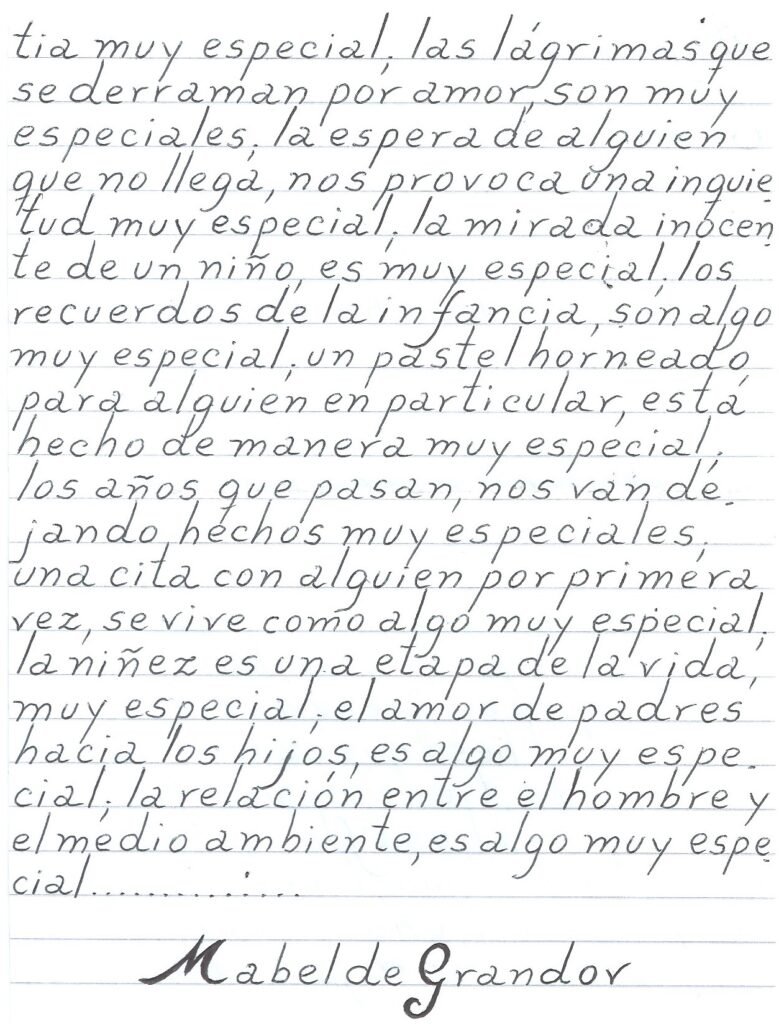 tia muy especial; las lágrimas que
se derraman por amor, son muy
especiales; la espera de alguien
que no llega, nos provoca una inquie
tud muy especial; la mirada inocen
te de un niño, es muy especial; los
recuerdos de la infancia, son algo
muy especial; un pastel horneado
para alguien en particular, está
hecho de manera muy especial;
los años que pasan, nos van de-
jando hechos muy especiales;
una cita con alguien por primera
vez, se vive como algo muy especial;
la niñez es una etapa de la vida,
muy especial; el amor de padres
hacia los hijos, es algo muy espe-
cial; la relación entre el hombre y
el medio ambiente, es algo muy espe
cial..............
Mabel de Grandov